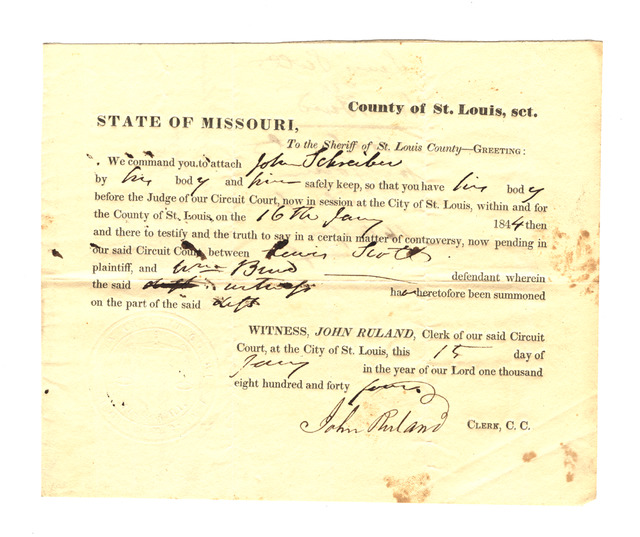 County of St. Louis, sct.
STATE OF MISSOURI,
To the Sheriff of St. Louis County—GREETING:
We command you to attach John Schreiber
by his body and him safely keep, so that you have his body
before the Judge of our Circuit Court, now in session at the City of St. Louis, within and for
the County of St. Louis, on the 16th Jany 1844 then
and there to testify and the truth to say in a certain matter of controversy, now pending in
our said Circuit Court, between Lewis Scott
plaintiff, and Wm defendant wherein
the said witness has heretofore been summoned
on the part of the said deft
WITNESS, JOHN RULAND, Clerk of our said Circuit
Court, at the City of St. Louis, this 15 day of
Jany in the year of our Lord one thousand
eight hundred and forty four
John Ruland CLERK, C. C.